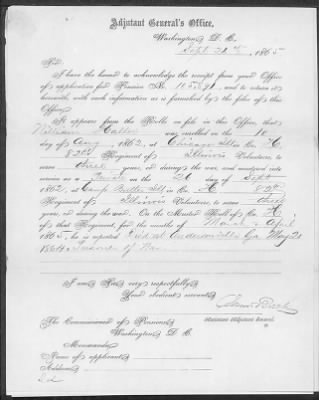 Adjutant General's Office,
Washington D. C.
Sept. 1865
Sir:
I have the honor to acknowledge the receipt from your Office
of application for Pension No. and to return it
herewith, with such information as is furnished by the files of this
Office.
It appears from the Rolls on file in this Office, that
William was enrolled on the 10
day of Aug, 1862, at Chicago Ills Co. H,
82nd Regiment of Illinois Volunteers, to serve
three years, or during the war, and mustered into
service as a Private on the 26 day of Sept
1862, at Camp Butler Ill, in Co. H 82nd
Regiment of Illinois Volunteers, to serve three
years, or during the war. On the Muster Roll of Co. H
of that Regiment, for the months of March & April
1865, he is reported Died at Andersonville Ga May 20
1864 Prisoner of War
I am Sir, very respectfully
Your obedient servant
Assistant Adjutant General.
The Commissioner of Pensions
Washington D. C.
Memoranda:
Name of applicant
Address